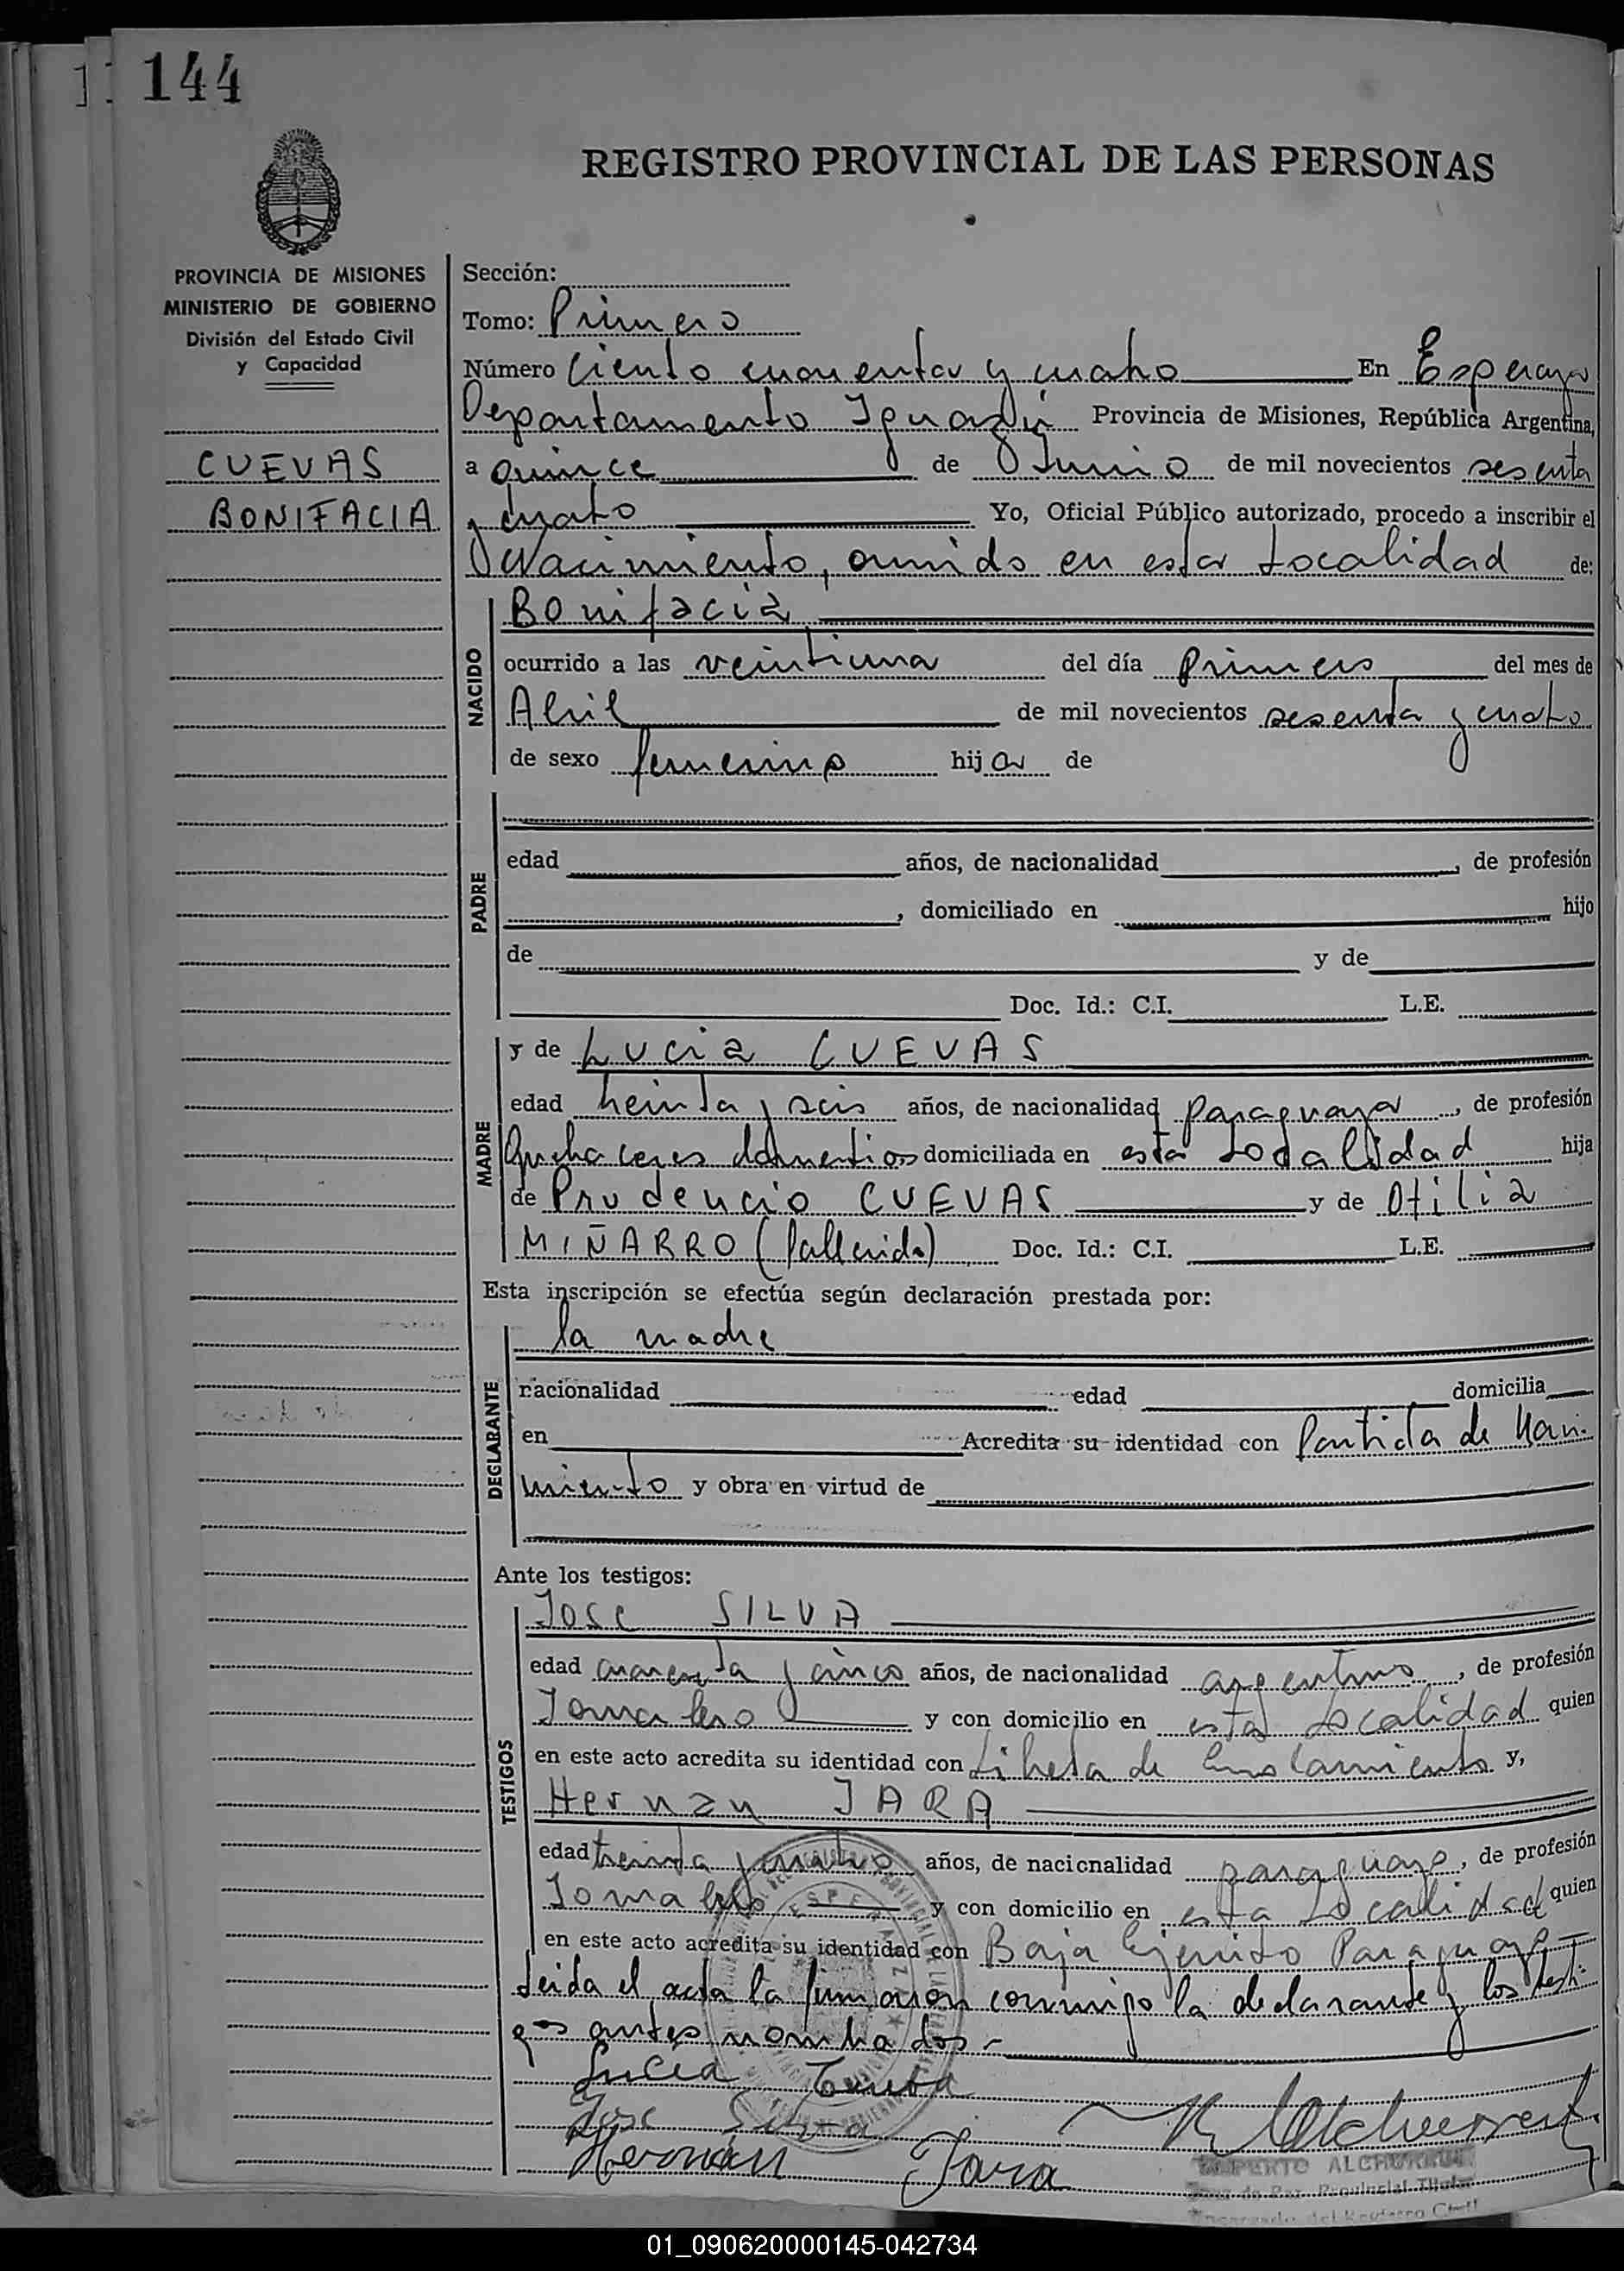 144
REGISTRO PROVINCIAL DE LAS PERSONAS
PROVINCIA DE MISIONES
MINISTERIO DE GOBIERNO
División del Estado Civil
y Capacidad
CUEVAS
BONIFACIA
Sección:
Tomo: Primero
Número Ciento cuarenta y cuatro En Esperanza
Departamento Iguazú Provincia de Misiones, República Argentina,
a quince de Junio de mil novecientos sesenta
y cuatro Yo, Oficial Público autorizado, procedo a inscribir el
Nacimiento, ocurrido en esta Localidad de:
NACIDO
Bonifacia
ocurrido a las veintiuna del día Primero del mes de
Abril de mil novecientos sesenta y cuatro
de sexo femenino hija de
PADRE
edad años, de nacionalidad , de profesión
, domiciliado en hijo
de y de
Doc. Id.: C.I. L.E.
MADRE
y de Lucia CUEVAS
edad treinta y seis años, de nacionalidad paraguaya , de profesión
Quehaceres domesticos domiciliada en esta Localidad hija
de Prudencio CUEVAS y de Otilia
MIÑARRO (fallecida) Doc. Id.: C.I. L.E.
Esta inscripción se efectúa según declaración prestada por:
DECLARANTE
la madre
nacionalidad edad domicilia
en Acredita su identidad con Partida de Naci-
miento y obra en virtud de
Ante los testigos:
TESTIGOS
Jose SILVA
edad cuarenta y cinco años, de nacionalidad argentino , de profesión
Jornalero y con domicilio en esta Localidad quien
en este acto acredita su identidad con Libreta de Enrolamiento y,
Hernan JARA
edad treinta y cuatro años, de nacionalidad paraguayo , de profesión
Jornalero y con domicilio en esta Localidad quien
en este acto acredita su identidad con Baja Ejercito Paraguayo
Leida el acta la firmaron conmigo la declarante y los testi-
gos antes nombrados.-
Lucia
Jose Silva
Hernan Jara
Juez de Paz Provincial Titular
Encargado del Registro Civil
01_090620000145-042734